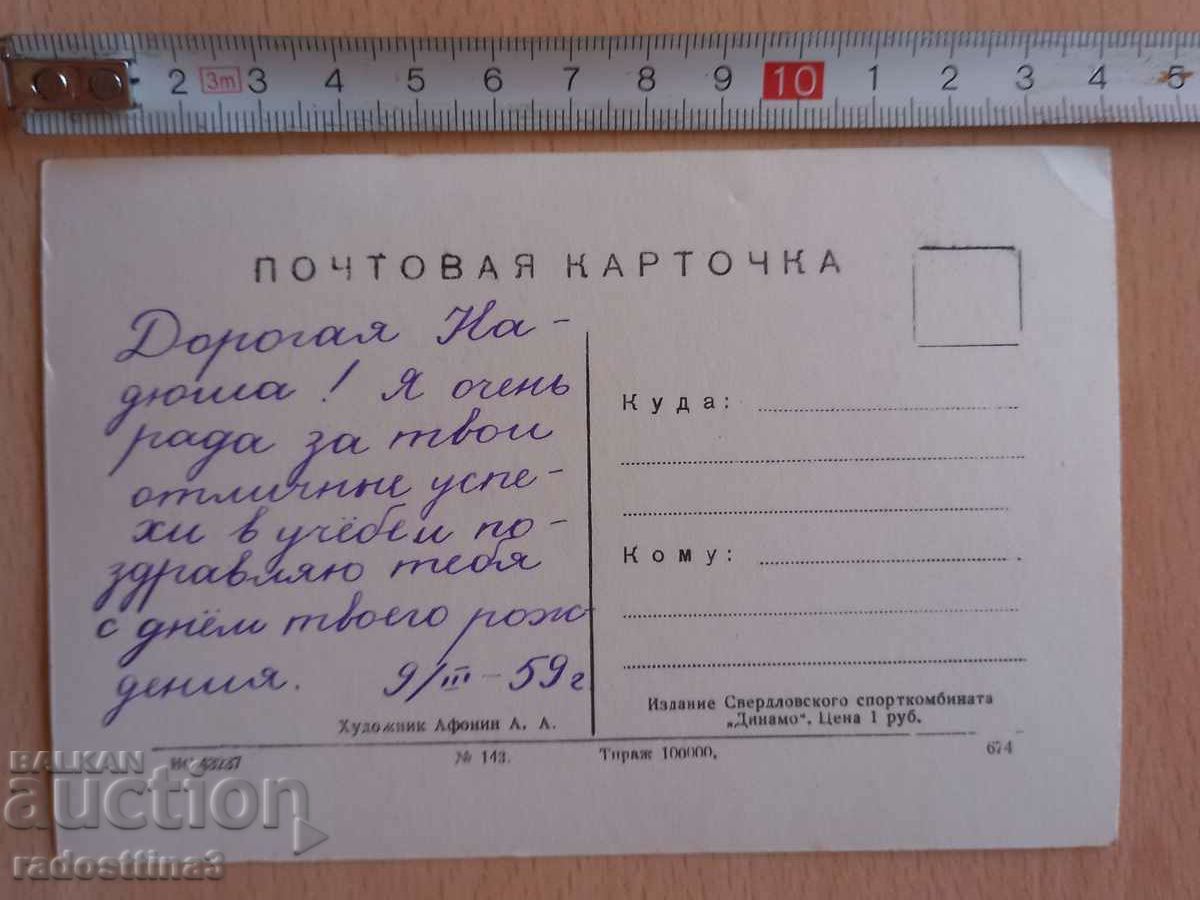 2 3m 3 4 5 6 7 8 9 10 1 2 3 4 5
ПОЧТОВАЯ КАРТОЧКА
Дорогая На-
дюша! Я очень
рада за твои
отличные успе-
хи в учёбе и по-
здравляю тебя
с днём твоего рож-
дения. 9/III-59г
Куда:
Кому:
Издание Свердловского спорткомбината
„Динамо“. Цена 1 руб.
Художник Афонин А. А.
№ 143.
Тираж 100000,
674
BALKAN
auction
radosttina3